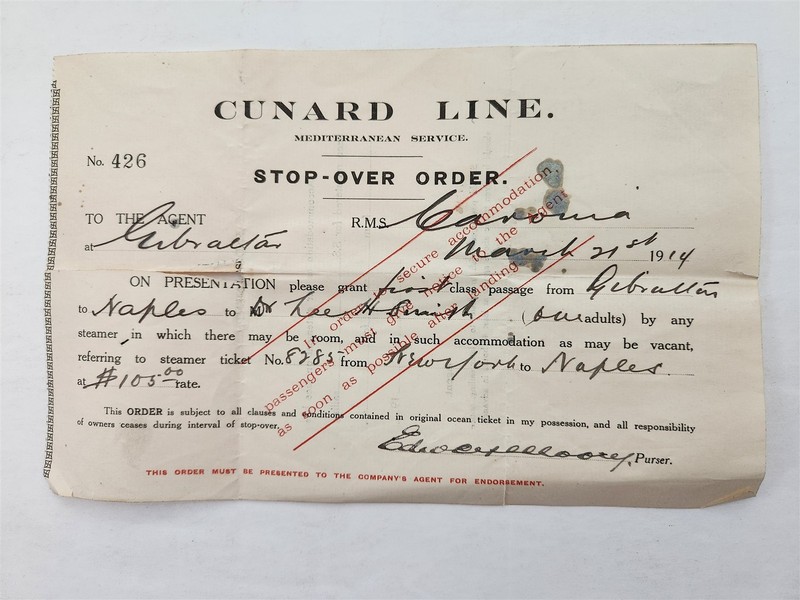 CUNARD LINE.
MEDITERRANEAN SERVICE.
No. 426
STOP-OVER ORDER.
TO THE AGENT R.M.S. Caronia
at Gibraltar March 21st 1914
ON PRESENTATION please grant first class passage from Gibraltar
to Naples to Dr Lee H Smith (one adults) by any
steamer in which there may be room, and in such accommodation as may be vacant,
referring to steamer ticket No. 8285 from New York to Naples
at $105.00 rate.
In order to secure accommodation,
passengers must give notice to the Agent
as soon as possible after landing.
This ORDER is subject to all clauses and conditions contained in original ocean ticket in my possession, and all responsibility
of owners ceases during interval of stop-over.
Purser.
THIS ORDER MUST BE PRESENTED TO THE COMPANY'S AGENT FOR ENDORSEMENT.